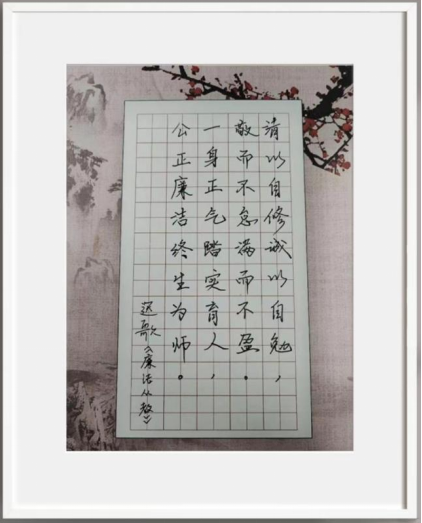 清以自修诚以自勉，
敬而不怠满而不盈。
一身正气踏实育人，
公正廉洁终生为师。
范歌《廉洁从教》